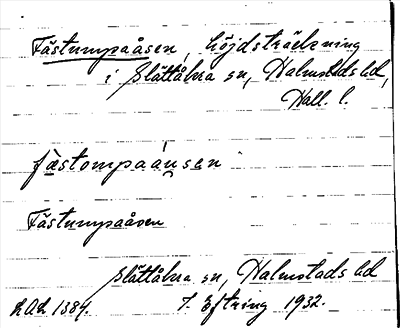 Fästumpaåsen, höjdsträckning
i Slättåkra sn, Halmstads hd,
Hall. l.
fästompaaùsen
Fästumpaåsen
Slättåkra sn, Halmstads hd
LAL 1384. 7. Eftring 1932.